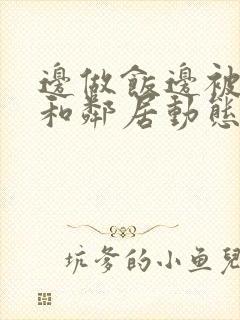 邊做飯邊被
和鄰居動態
坑爹的小鱼兒